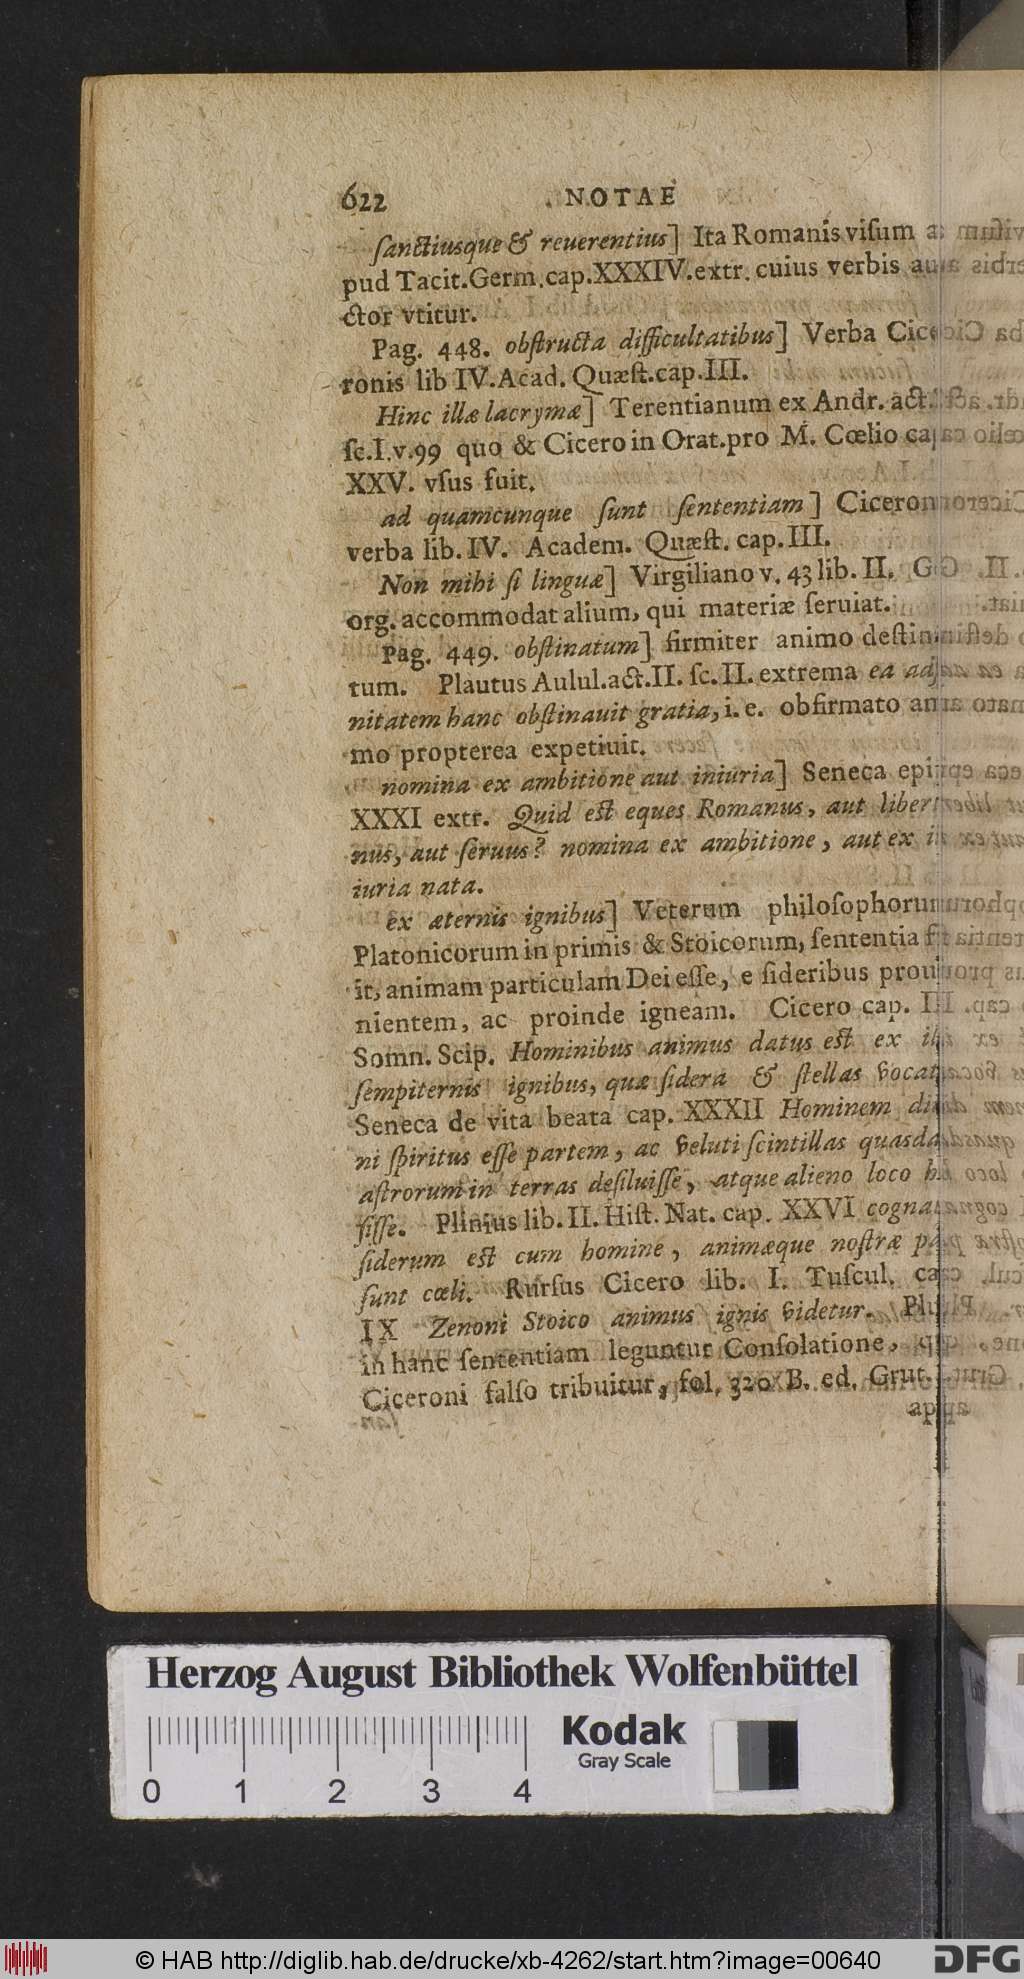 622 NOTAE
ſanctiusque & reuerentius] Ita Romanis viſum a-
pud Tacit. Germ. cap. XXXIV. extr. cuius verbis au-
ctor vtitur.
Pag. 448. obſtructa difficultatibus] Verba Cice-
ronis lib IV. Acad. Quæſt. cap. III.
Hinc illæ lacrymæ] Terentianum ex Andr. act. I.
ſc. I. v. 99 quo & Cicero in Orat. pro M. Cœlio cap.
XXV. vſus fuit.
ad quamcunque ſunt ſententiam] Ciceronis
verba lib. IV. Academ. Quæſt. cap. III.
Non mihi ſi linguæ] Virgiliano v. 43 lib. II. Ge-
org. accommodat alium, qui materiæ ſeruiat.
Pag. 449. obſtinatum] firmiter animo deſtina-
tum. Plautus Aulul. act. II. ſc. II. extrema ea adfi-
nitatem hanc obſtinauit gratia, i. e. obfirmato ani-
mo propterea expetiuit.
nomina ex ambitione aut iniuria] Seneca epiſt.
XXXI extr. Quid eſt eques Romanus, aut liberti-
nus, aut ſeruus? nomina ex ambitione, aut ex in-
iuria nata.
ex æternis ignibus] Veterum philoſophorum
Platonicorum in primis & Stoicorum, ſententia fu-
it, animam particulam Dei eſſe, e ſideribus proue-
nientem, ac proinde igneam. Cicero cap. III
Somn. Scip. Hominibus animus datus eſt ex illis
ſempiternis ignibus, quæ ſidera & ſtellas vocatis
Seneca de vita beata cap. XXXII Hominem diui-
ni ſpiritus eſſe partem, ac veluti ſcintillas quasdam
aſtrorum in terras deſiluiſſe, atque alieno loco hæ-
ſiſſe. Plinius lib. II. Hiſt. Nat. cap. XXVI cognatio
ſiderum eſt cum homine, animæque noſtræ pars
ſunt cœli. Rurſus Cicero lib. I. Tuſcul. cap.
IX Zenoni Stoico animus ignis videtur. Plura
in hanc ſententiam leguntur Conſolatione, quæ
Ciceroni falſo tribuitur, fol. 320 B. ed. Grut.
Herzog August Bibliothek Wolfenbüttel
Kodak
Gray Scale
0 1 2 3 4
© HAB http://diglib.hab.de/drucke/xb-4262/start.htm?image=00640 DFG